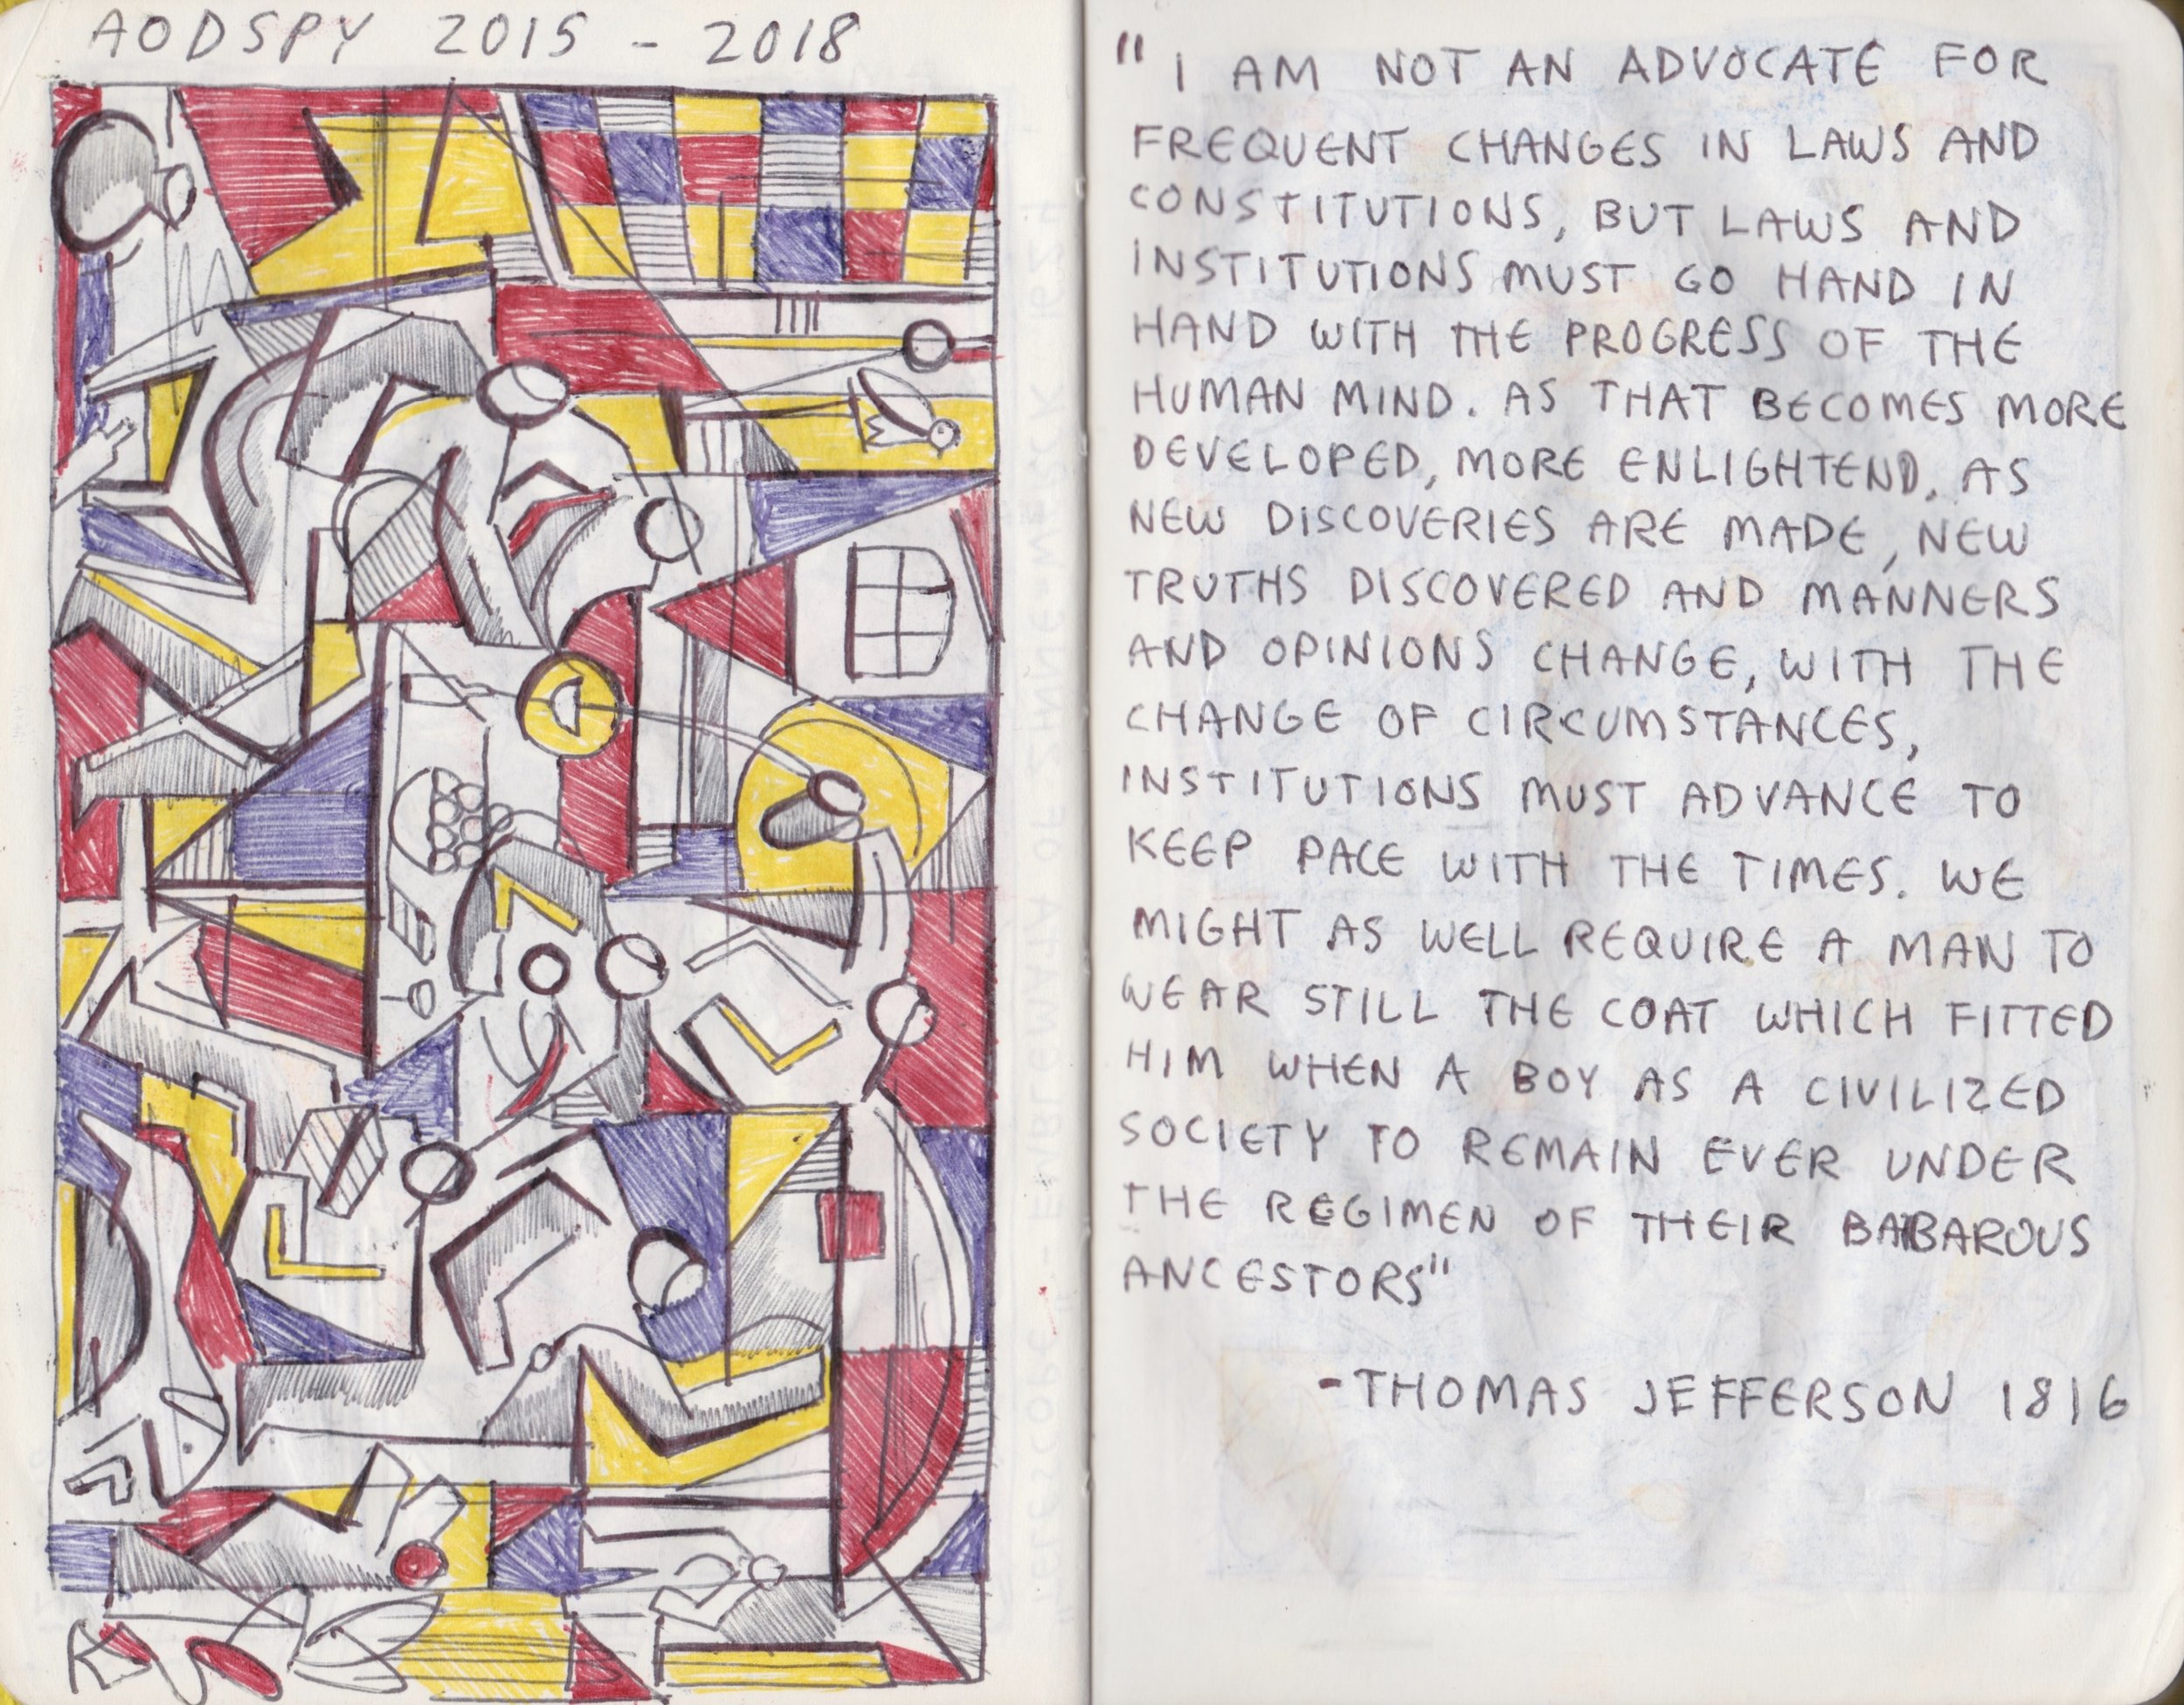 AODSPY 2015 - 2018
"I AM NOT AN ADVOCATE FOR
FREQUENT CHANGES IN LAWS AND
CONSTITUTIONS, BUT LAWS AND
INSTITUTIONS MUST GO HAND IN
HAND WITH THE PROGRESS OF THE
HUMAN MIND. AS THAT BECOMES MORE
DEVELOPED, MORE ENLIGHTEND, AS
NEW DISCOVERIES ARE MADE, NEW
TRUTHS DISCOVERED AND MANNERS
AND OPINIONS CHANGE, WITH THE
CHANGE OF CIRCUMSTANCES,
INSTITUTIONS MUST ADVANCE TO
KEEP PACE WITH THE TIMES. WE
MIGHT AS WELL REQUIRE A MAN TO
WEAR STILL THE COAT WHICH FITTED
HIM WHEN A BOY AS A CIVILIZED
SOCIETY TO REMAIN EVER UNDER
THE REGIMEN OF THEIR BABAROUS
ANCESTORS"
-THOMAS JEFFERSON 1816